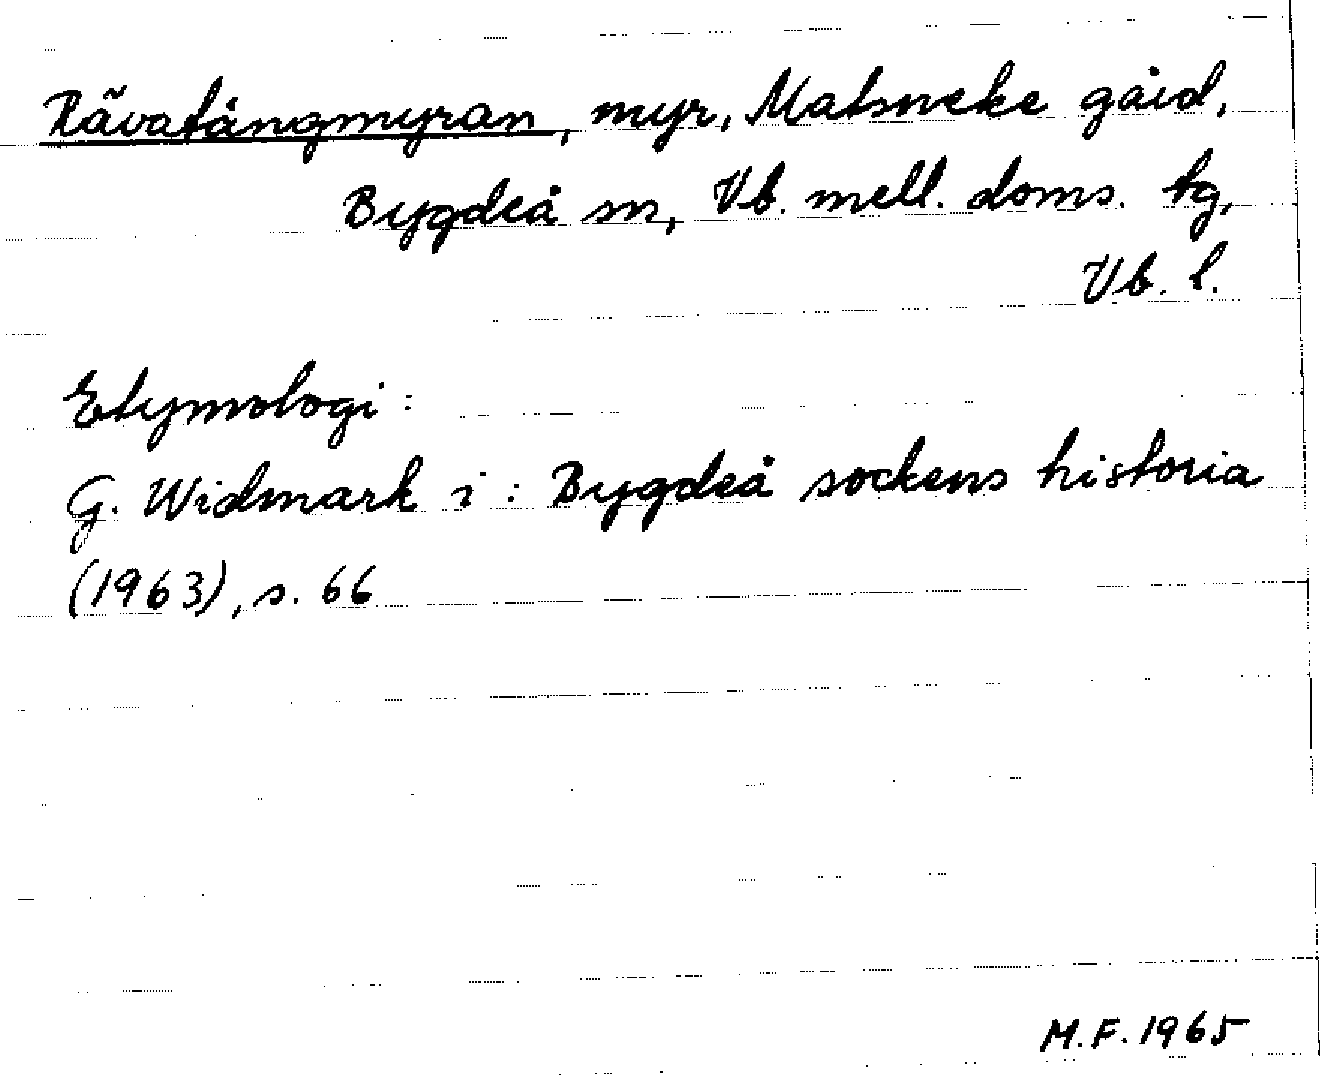 Rävafångmyran, myr, Matsneke gård,
Bygdeå sn, Vb. mell. doms. tg,
Vb. l.
Etymologi:
G. Widmark i: Bygdeå sockens historia
(1963), s. 66
M.F. 1965